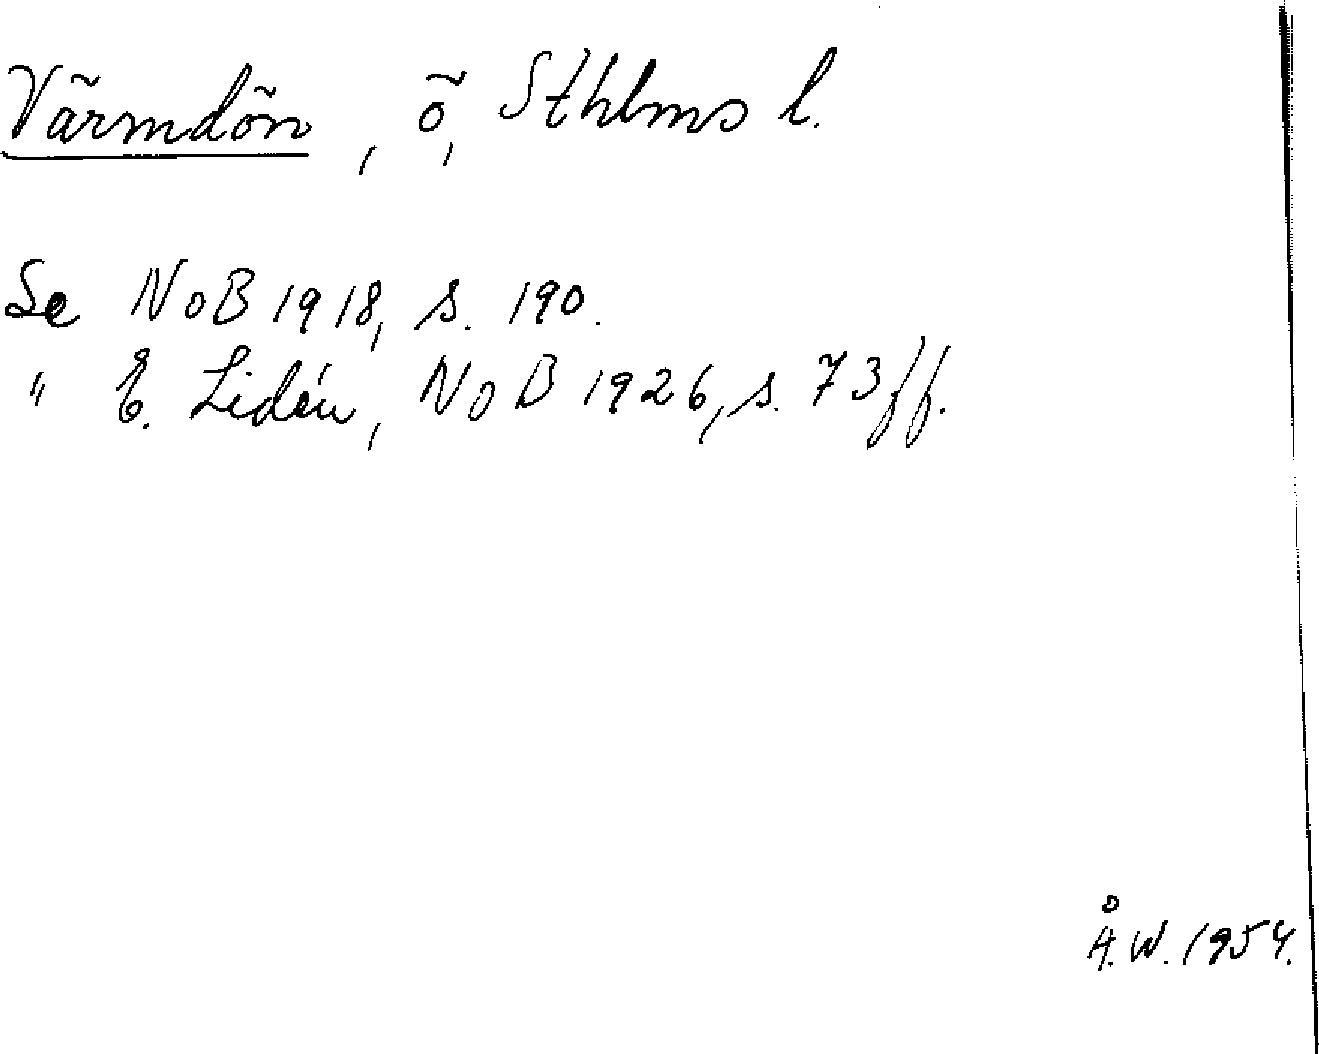 Värmdön, ö, Sthlms l.
Se NoB 1918, s. 190.
" E. Lidén, NoB 1926, s. 73 ff.
Å.W. 1954.